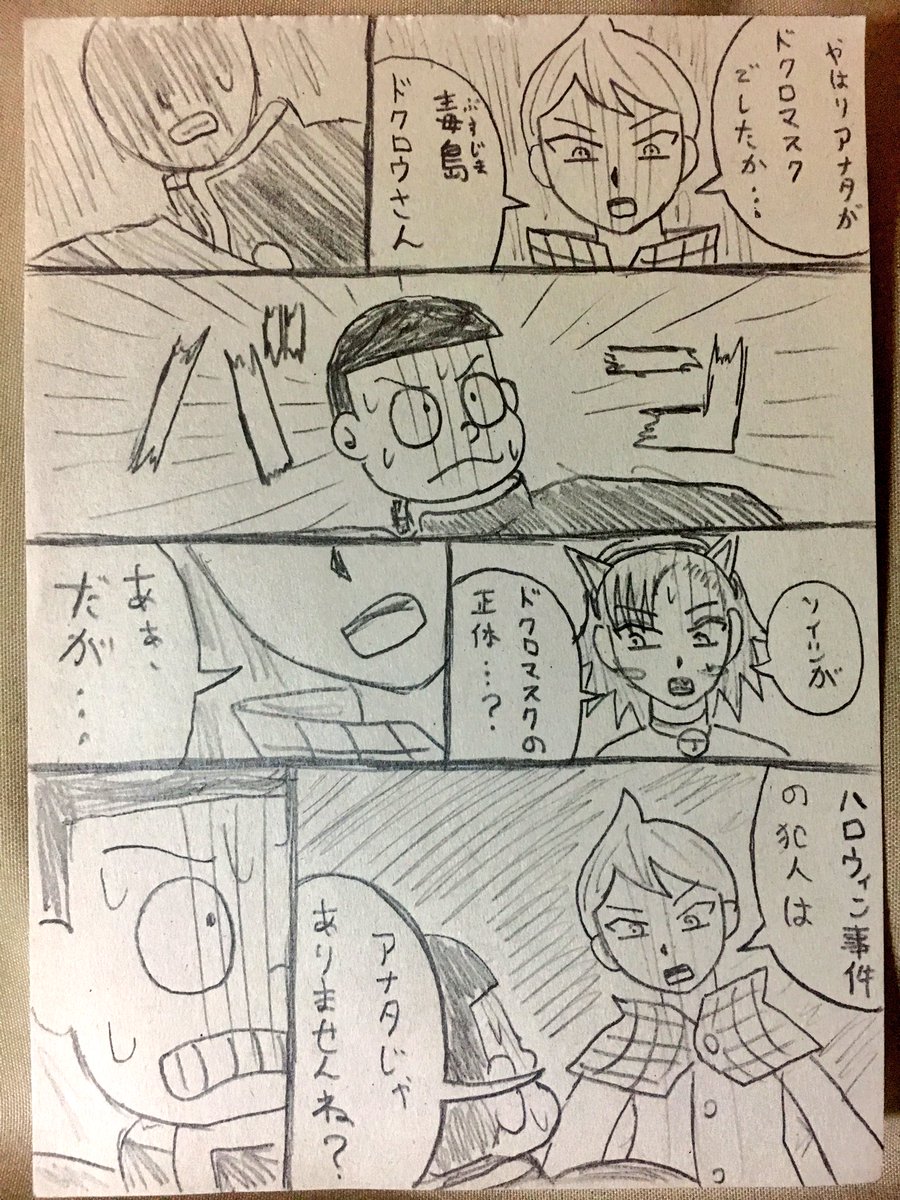 やはりアナタが
ドクロマスク
でしたか・・・
ぶすじま
毒島
ドクロウさん
ソイツが
ドクロマスクの
正体・・・?
あぁ、
だが・・・
ハロウィン事件
の犯人は
アナタじゃ
ありませんね?